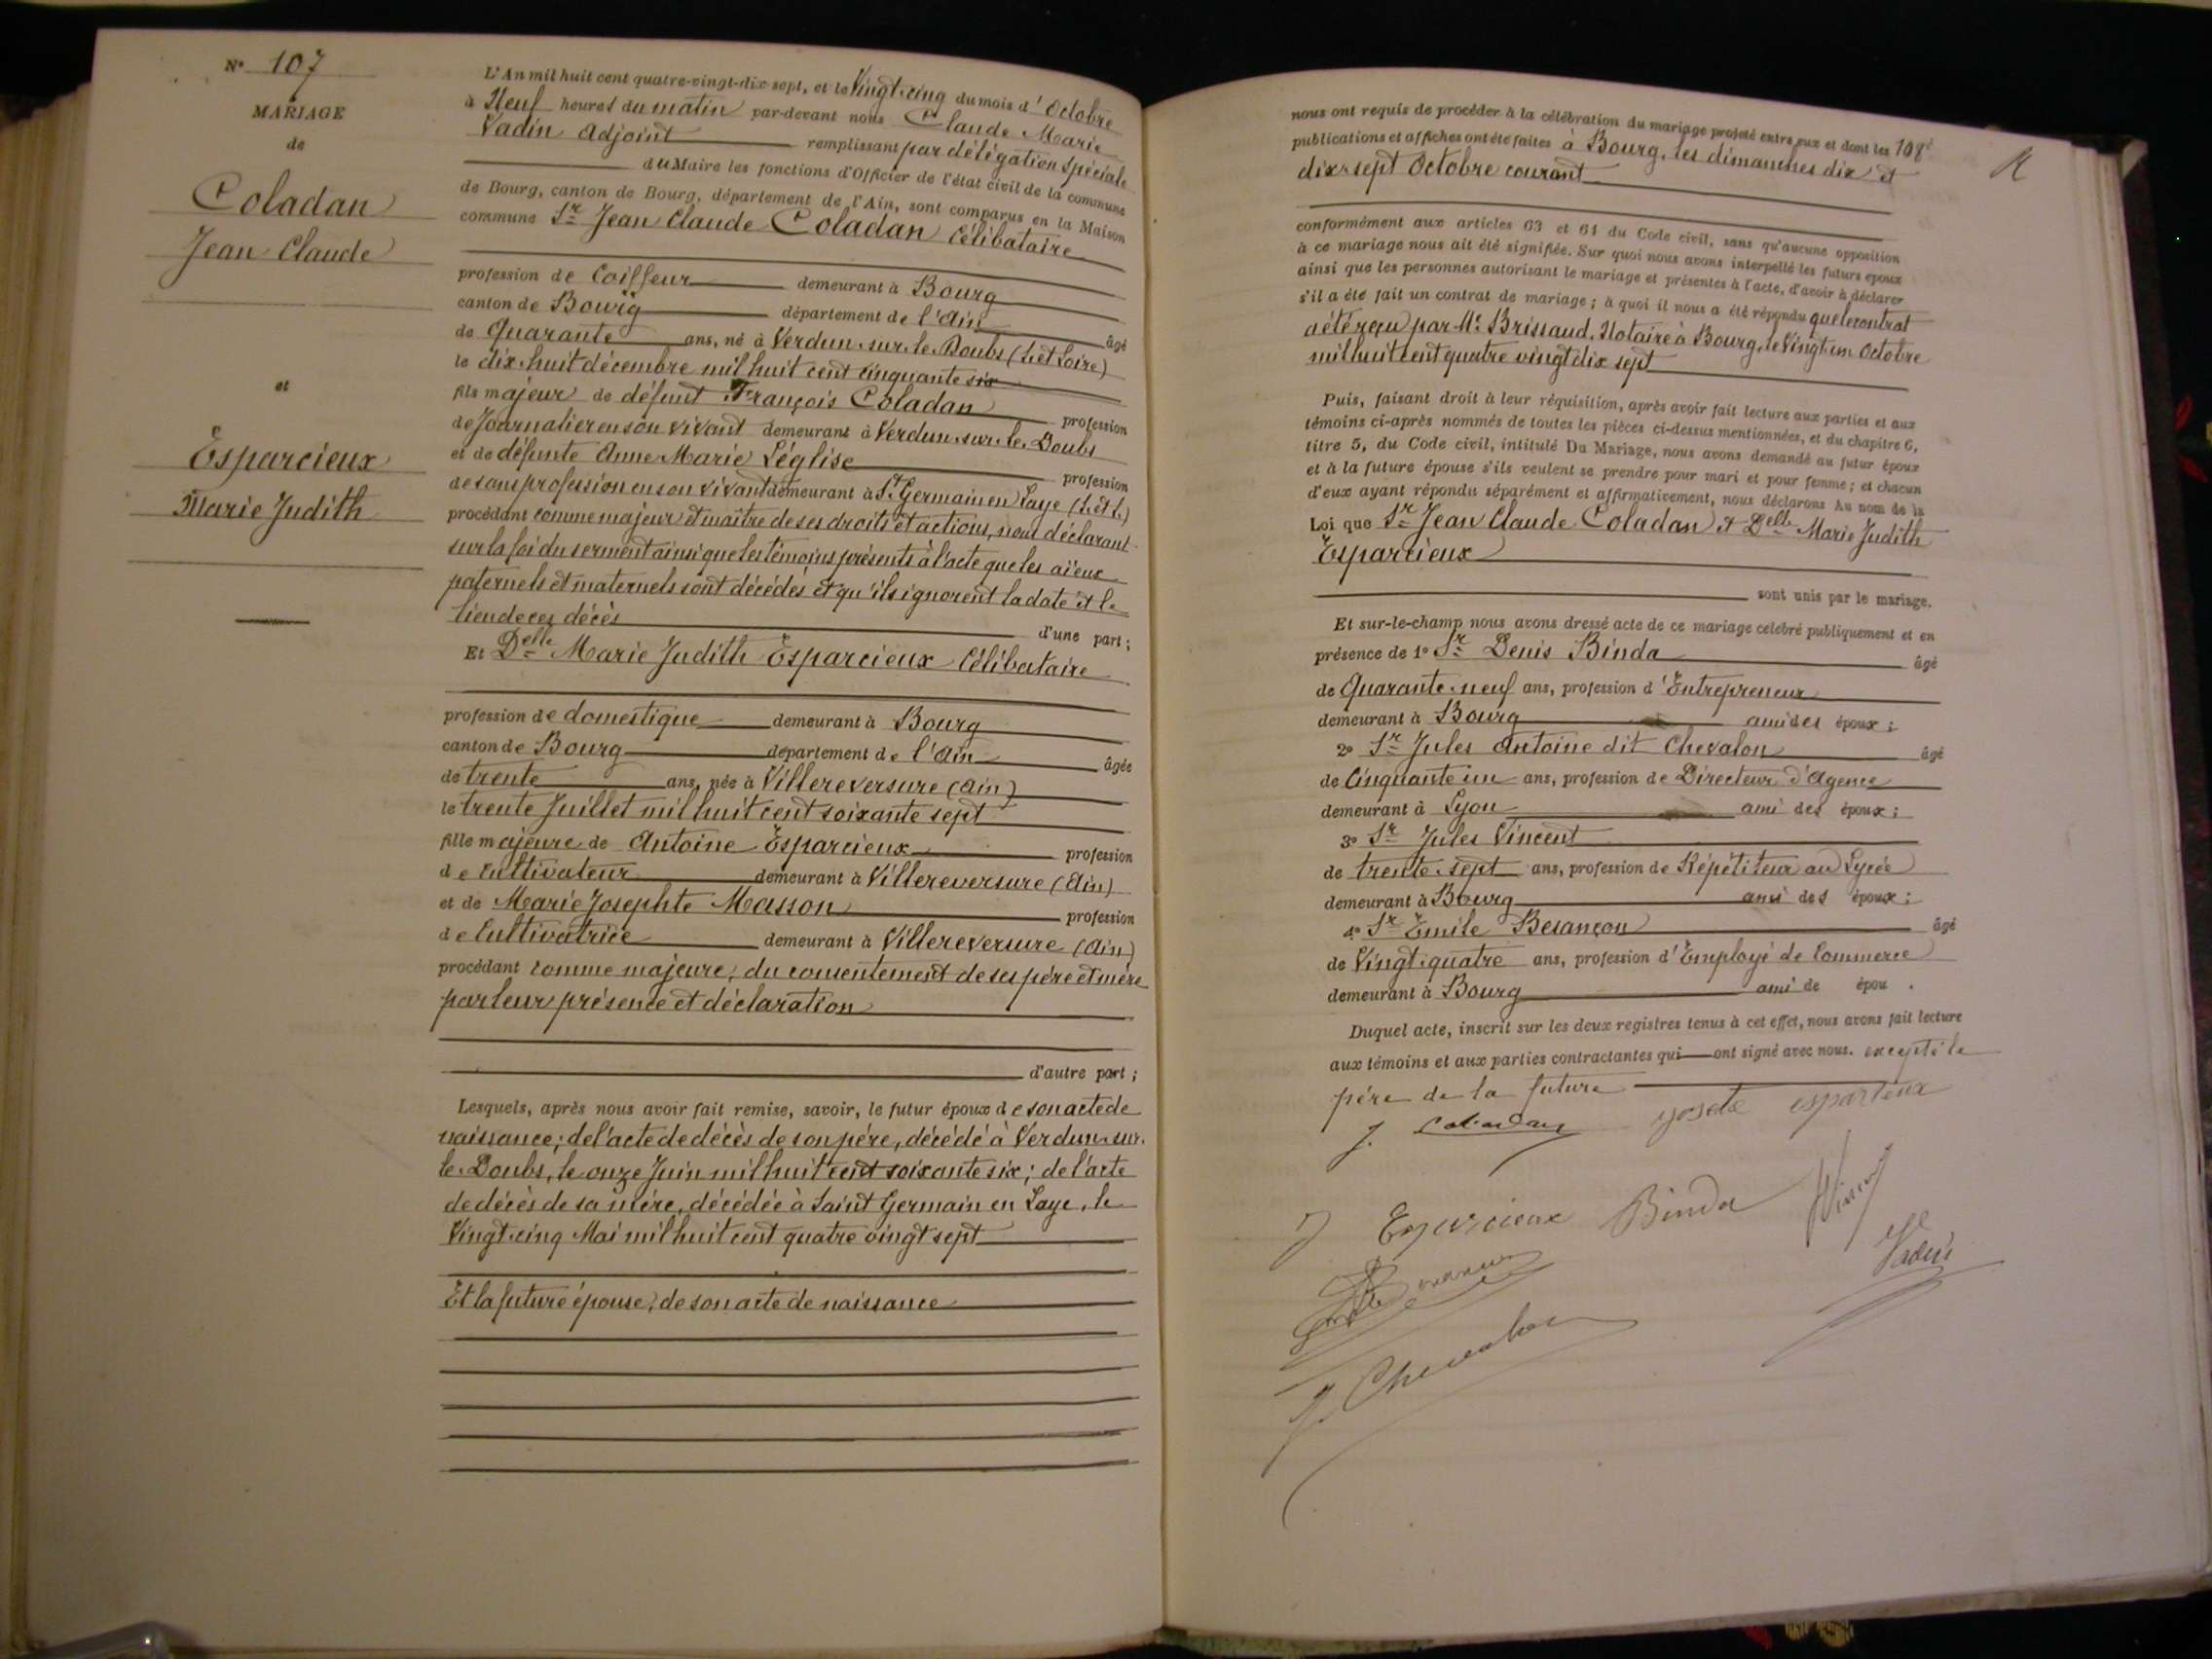 N° 107
MARIAGE
de
Coladan
Jean Claude
et
Esparcieux
Marie Judith
L'An mil huit cent quatre-vingt-dix sept, et le Vingt-cinq du mois d'Octobre
à Neuf heures du matin par-devant nous Claude Marie
Vadin adjoint remplissant par délégation spéciale
du Maire les fonctions d'Officier de l'état civil de la commune
de Bourg, canton de Bourg, département de l'Ain, sont comparus en la Maison
commune Sr Jean Claude Coladan Célibataire
profession de Coiffeur demeurant à Bourg
canton de Bourg département de l'Ain âgé
de Quarante ans, né à Verdun-sur-le-Doubs (S. et Loire)
le dix-huit décembre mil huit cent cinquante six
fils majeur de défunt François Coladan profession
de Journalier en son vivant demeurant à Verdun-sur-le-Doubs
et de défunte Anne Marie Léglise profession
de sans profession en son vivant demeurant à St Germain en Laye (S. et O.)
procédant comme majeur et maître de ses droits et actions, nous déclarant
sur la foi du serment ainsi que les témoins présents à l'acte que les aïeux
paternels et maternels sont décédés et qu'ils ignorent la date et le
lieu de ces décès d'une part;
Et Delle Marie Judith Esparcieux Célibataire
profession de domestique demeurant à Bourg
canton de Bourg département de l'Ain âgée
de trente ans, née à Villereversure (Ain)
le trente Juillet mil huit cent soixante sept
fille majeure de Antoine Esparcieux profession
de Cultivateur demeurant à Villereversure (Ain)
et de Marie Josephte Masson profession
de Cultivatrice demeurant à Villereversure (Ain)
procédant comme majeure, du consentement de ses père et mère
par leur présence et déclaration
d'autre part;
Lesquels, après nous avoir fait remise, savoir, le futur époux de son acte de
naissance; de l'acte de décès de son père, décédé à Verdun-sur-
le-Doubs, le onze Juin mil huit cent soixante six; de l'acte
de décès de sa mère, décédée à Saint Germain en Laye, le
Vingt-cinq Mai mil huit cent quatre vingt sept
Et la future épouse, de son acte de naissance
108e
nous ont requis de procéder à la célébration du mariage projeté entre eux et dont les
publications et affiches ont été faites à Bourg, les dimanches dix et
dix-sept Octobre courant
conformément aux articles 63 et 64 du Code civil, sans qu'aucune opposition
à ce mariage nous ait été signifiée. Sur quoi nous avons interpellé les futurs époux
ainsi que les personnes autorisant le mariage et présentes à l'acte, d'avoir à déclarer
s'il a été fait un contrat de mariage; à quoi il nous a été répondu que le contrat
a été reçu par Me Brissaud, Notaire à Bourg, le Vingt-un Octobre
mil huit cent quatre vingt dix sept
Puis, faisant droit à leur réquisition, après avoir fait lecture aux parties et aux
témoins ci-après nommés de toutes les pièces ci-dessus mentionnées, et du chapitre 6,
titre 5, du Code civil, intitulé Du Mariage, nous avons demandé au futur époux
et à la future épouse s'ils veulent se prendre pour mari et pour femme; et chacun
d'eux ayant répondu séparément et affirmativement, nous déclarons Au nom de la
Loi que Sr Jean Claude Coladan et Delle Marie Judith
Esparcieux
sont unis par le mariage.
Et sur-le-champ nous avons dressé acte de ce mariage célébré publiquement et en
présence de 1° Sr Denis Binda âgé
de Quarante-neuf ans, profession d'Entrepreneur
demeurant à Bourg ami des époux;
2° Sr Jules Antoine dit Chevalon âgé
de Cinquante un ans, profession de Directeur d'Agence
demeurant à Lyon ami des époux;
3° Sr Jules Vincent
de trente-sept ans, profession de Répétiteur au Lycée
demeurant à Bourg ami des époux;
4° Sr Emile Besançon âgé
de Vingt-quatre ans, profession d'Employé de Commerce
demeurant à Bourg ami de épou .
Duquel acte, inscrit sur les deux registres tenus à cet effet, nous avons fait lecture
aux témoins et aux parties contractantes qui ont signé avec nous. excepté le
père de la future
J. Coladan
esparcieux
J Esparcieux Binda
Vadin
J. Chevalon